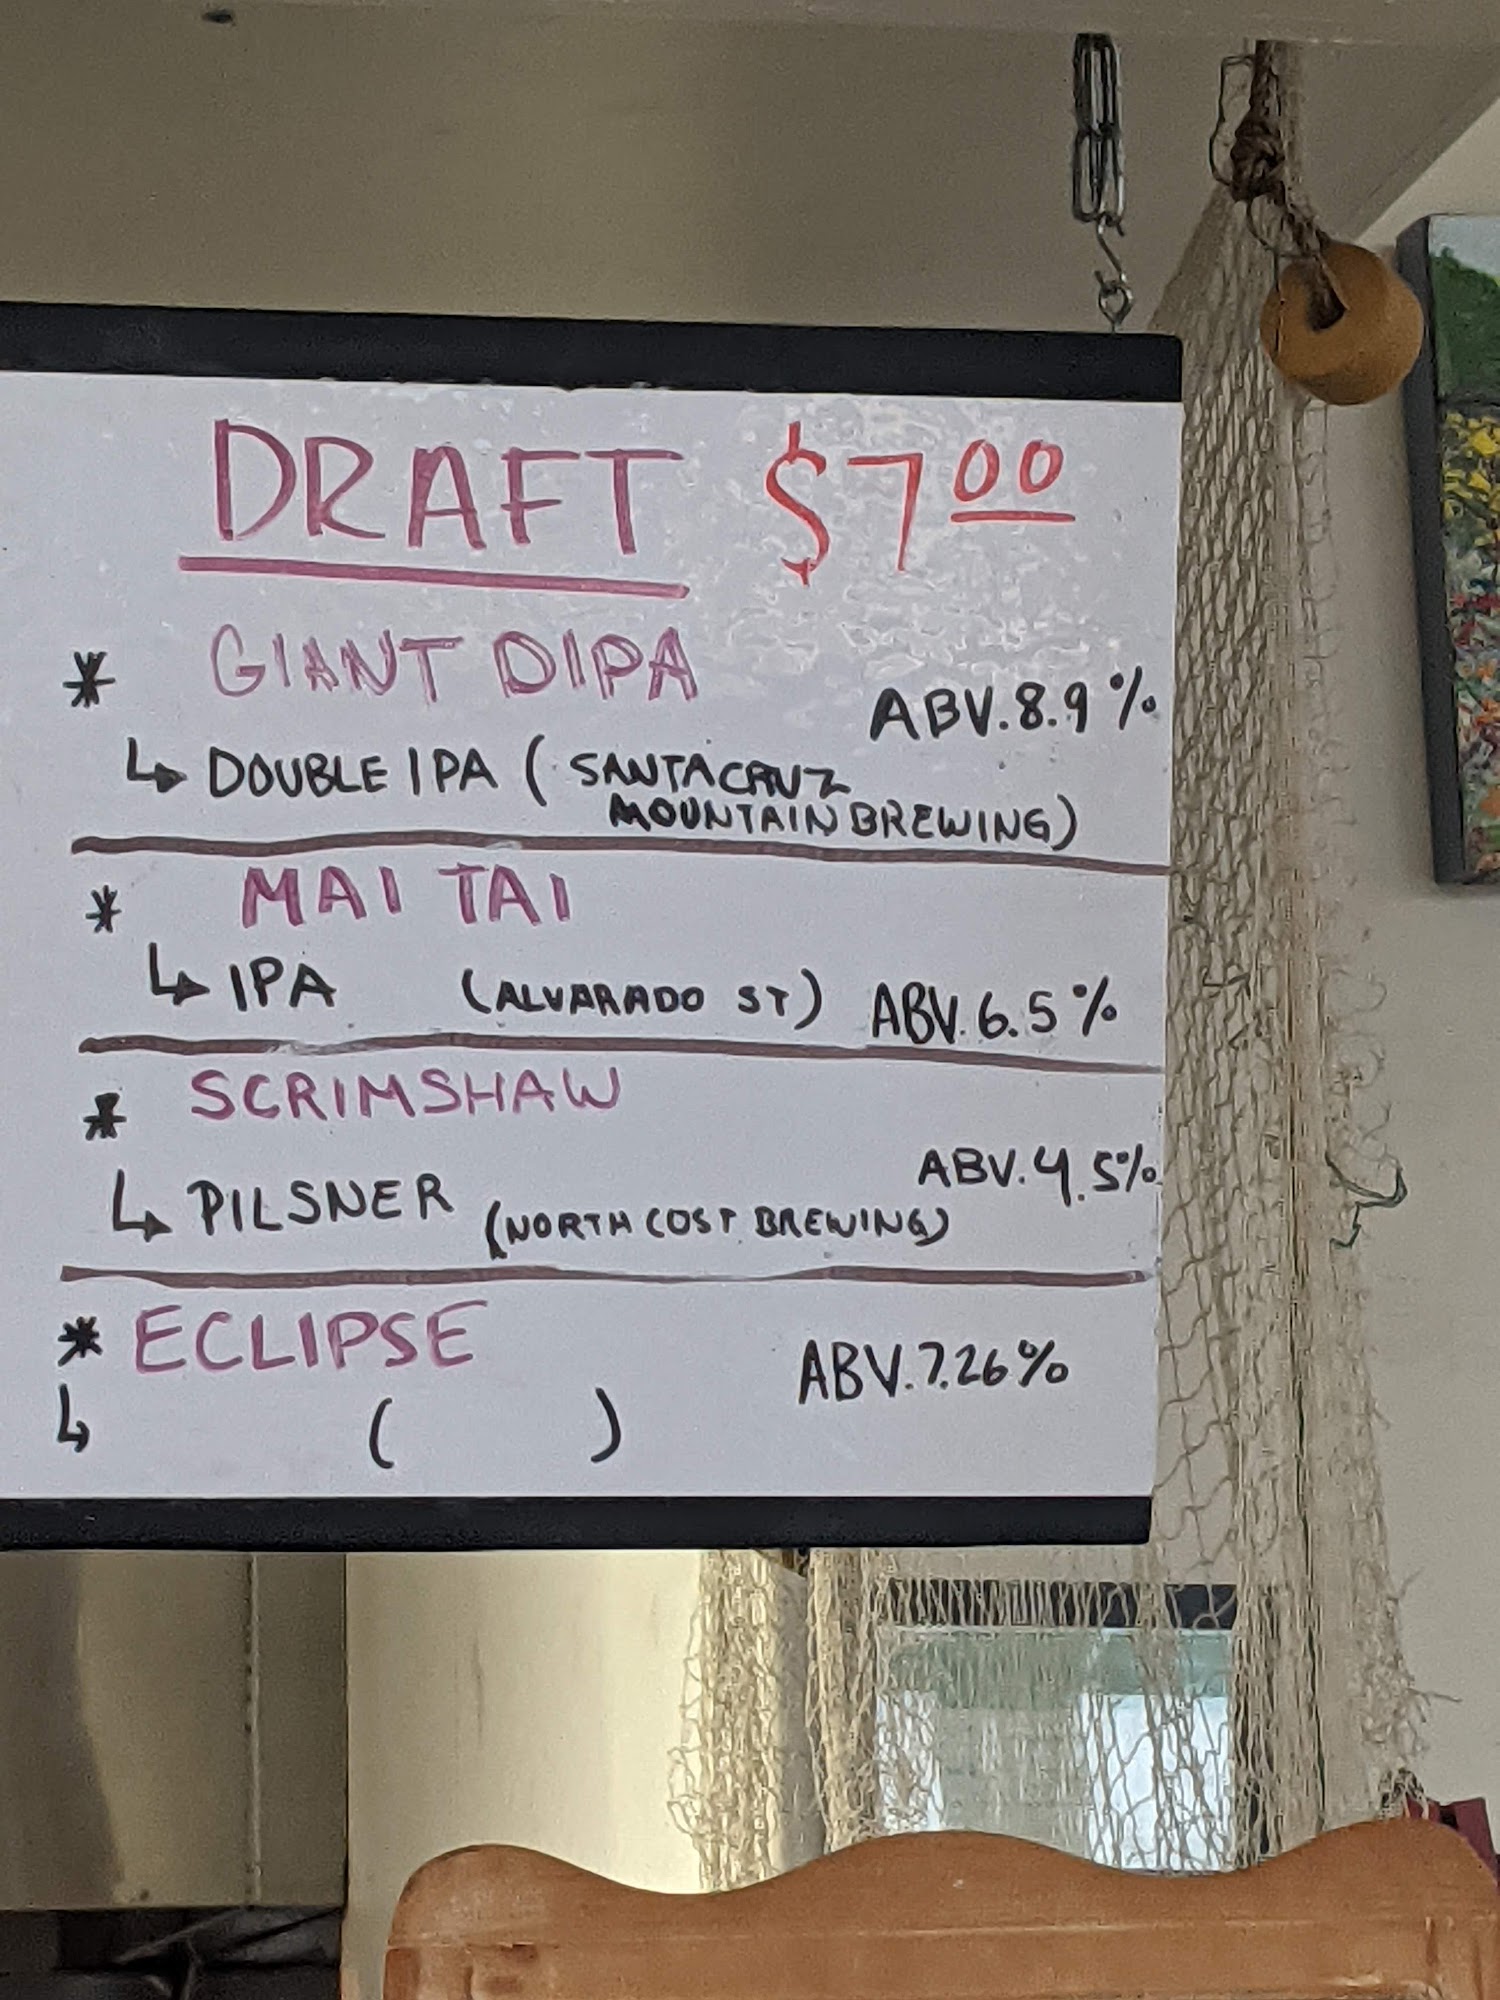 DRAFT $7.00
* GIANT DIPA
ABV. 8.9%
↳ DOUBLE IPA ( SANTA CRUZ
MOUNTAIN BREWING)
* MAI TAI
↳ IPA (ALVARADO ST) ABV. 6.5%
* SCRIMSHAW
ABV. 4.5%
↳ PILSNER (NORTH COST BREWING)
* ECLIPSE ABV. 7.26%
↳ ( )